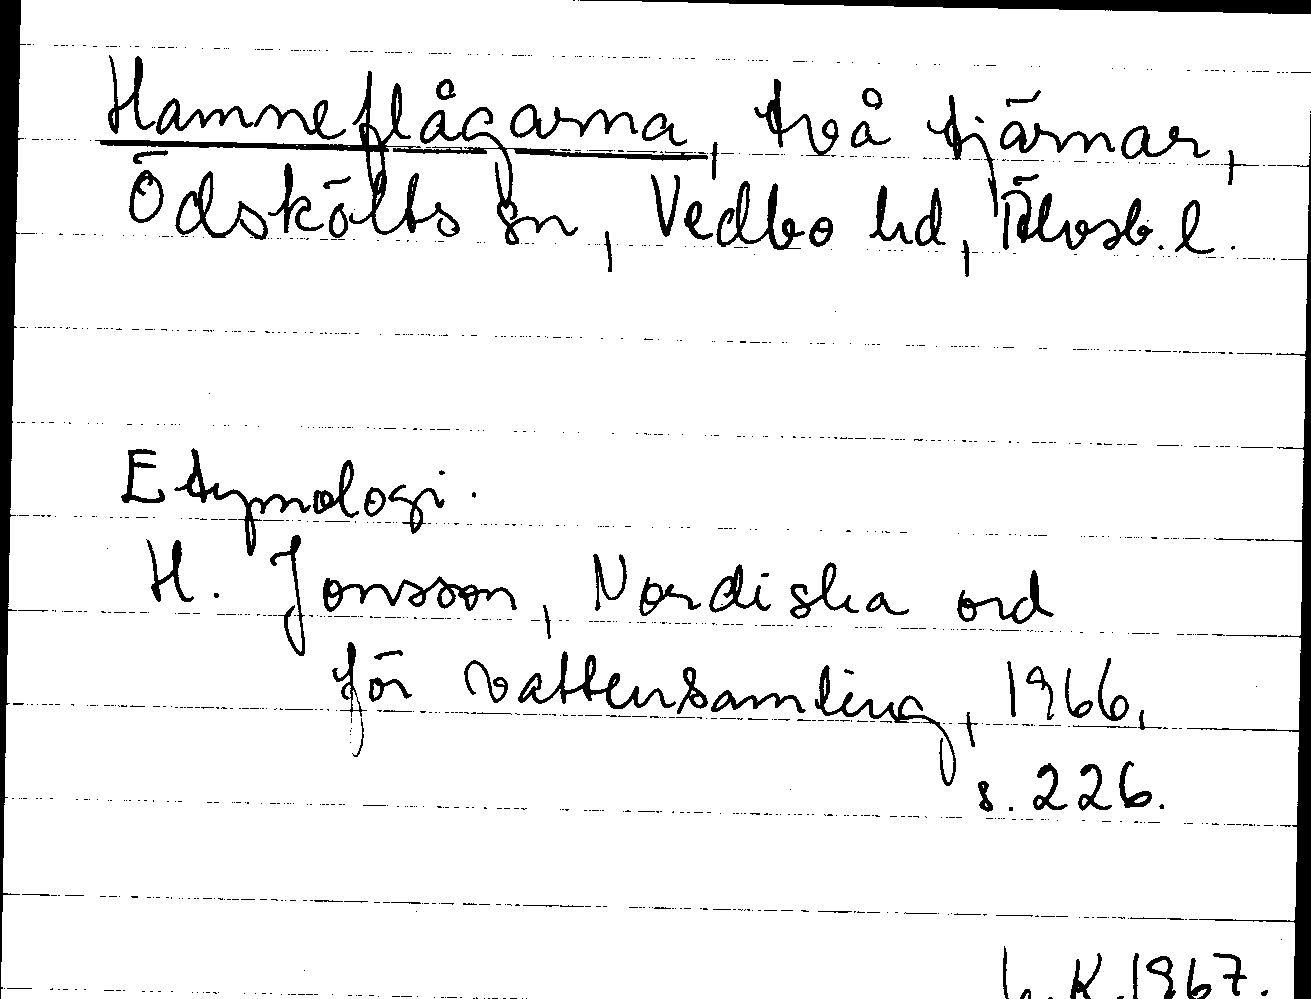 Hamneflågarna, två tjärnar,
Ödskölts sn, Vedbo hd, Älvsb. l.
Etymologi.
H. Jonsson, Nordiska ord
för vattensamling, 1966,
s. 226.
K. 1967.